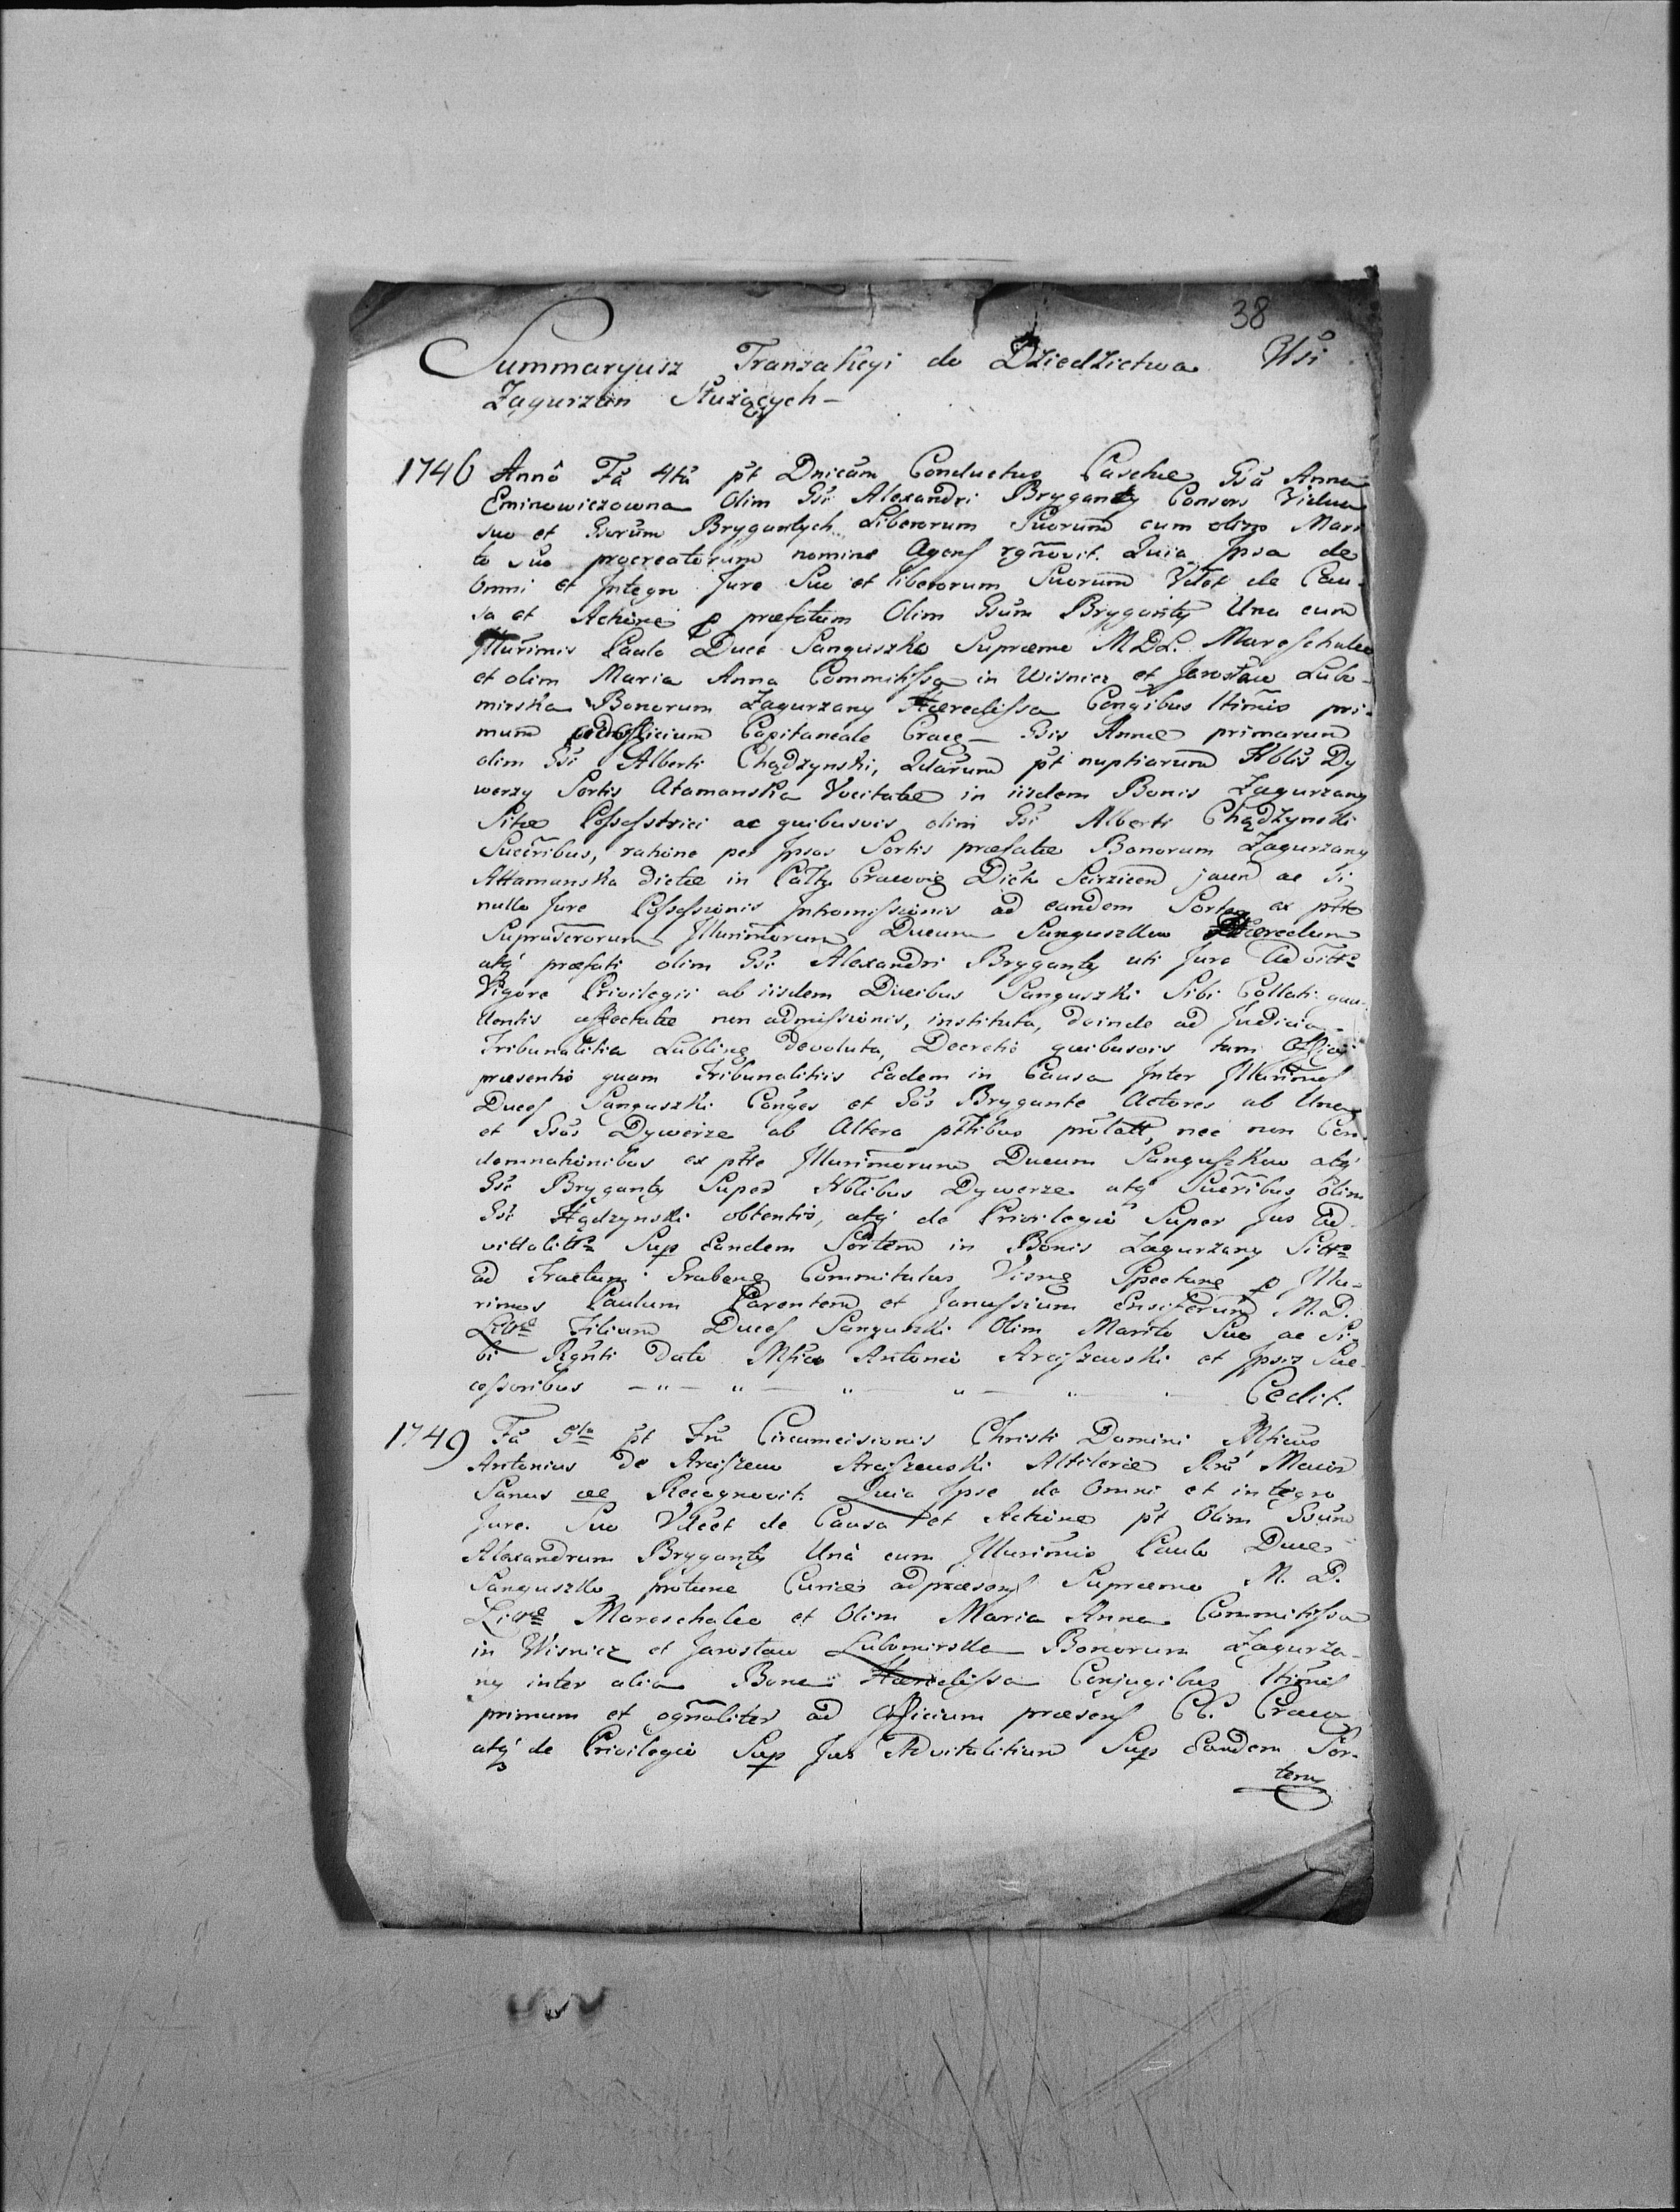 38
Summaryusz Tranzakcyi do Dziedzictwa Wsi
Zagurzan Służących —
1746 Annô Fã 4tã p̃t Dnicãm Conductus Paschæ Gsã Anna
Eminowiczowna Olim Gsi Alexandri Bryganty Consors Vidua
suo et Gsorum Brygantych Liberorum Suorum cum olim Mari
to Suo procreatorum nomine Agens rgñovit. Quia Ipsa de
Omni et Integro Jure Suo et liberorum Suorum Vdet de Cau-
sa et Actione p præfatum Olim Gsũm Bryganty Una cum
Illurimis Paulo Duce Sanguszko Supremo M.D.L. Mareschalco
et olim Maria Anna Commitissa in Wisnicz et Jarosław Lubo-
mirska Bonorum Zagurzany Hæredissa Congibus Itimis pri-
mum ad officium Capitaneale Crac — Gsis Annæ primarum
olim Gsi Alberti Chądzynski, 2darum p̃t nuptiarum Nblis Dy
werzy Sortis Atamanska Vocitatæ in iisdem Bonis Zagurzany
Sitæ Possestrici ac quibusvis olim Gsi Alberti Chądzynski
Succribus, ratione per Ipsos Sortis præfatæ Bonorum Zagurzany
Attamanska dictæ in Pałtu Cracovię Dictu jacen ac Si
nullo Jure Possessionis Intromissionis ad eandem Sortem ex ptte
Supradictorum Illurimorum Ducum Sanguszkow Hæredum
atq præfati olim Gsi Alexandri Bryganty uti Jure Advit
Vigore Privilegii ab iisdem Ducibus Sanguszki Sibi Collati gau-
dentis affectatæ non admissionis, instituta, deinde ad Judicia
Tribunalitia Lubling devoluta, Decretis quibusvis tam Officij
præsentis quam Tribunalitiis Eadem in Causa Inter Illurimos
Duces Sanguszki Conges et Gsos Brygante Actores ab Una
et Gsos Dyweize ab Altera pttibus prolatt, nec non Con-
demnationibus ex ptte Illurimorum Ducum Sanguszkow atq
Gsi Bryganty Super Nblibus Dywerze atq Succribus olim
Gsi Hądzynski obtentis, atq de Privilegio Super Jus Ad
vittalitt Sup Eandem Sortem in Bonis Zagurzany Sitt
ad Tractum Grabeng Commitatus Visng Spectang p Illu-
rimos Paulum Parentem et Janussium Ensiferum M.D.
Litt Filium Duces Sanguszki Olim Marito Suo ac Si-
bi Rgnti dato Mfico Antonio Arciszewski et Ipsis Suc-
cessoribus — " — " — " — " — " — Cedit.
1749 Fã 5ta p̃t Fm Circumcisionis Christi Domini Mficus
Antonius de Arciszew Arciszewski Altilerie Rni Maior
Sanus etc Recognovit. Quia Ipse de Omni et integro
Jure Suo Vdcet de Causa et Actione p̃t Olim Gsũm
Alexandrum Bryganty Unà cum Illurimis Paulo Duce
Sanguszko protunc Curiæ adpræsens Supremo M. D.
Litt Mareschalco et Olim Maria Anna Commitissa
in Wisnicz et Jarosław Lubomirska Bonorum Zagurza-
ny inter alia Bona Hæredissa Conjugibus Itimis
primum et ognaliter ad Officium præsens CC. Crac
atq de Privilegio Sup Jus Advitalitium Sup Eandem Sor-
tem